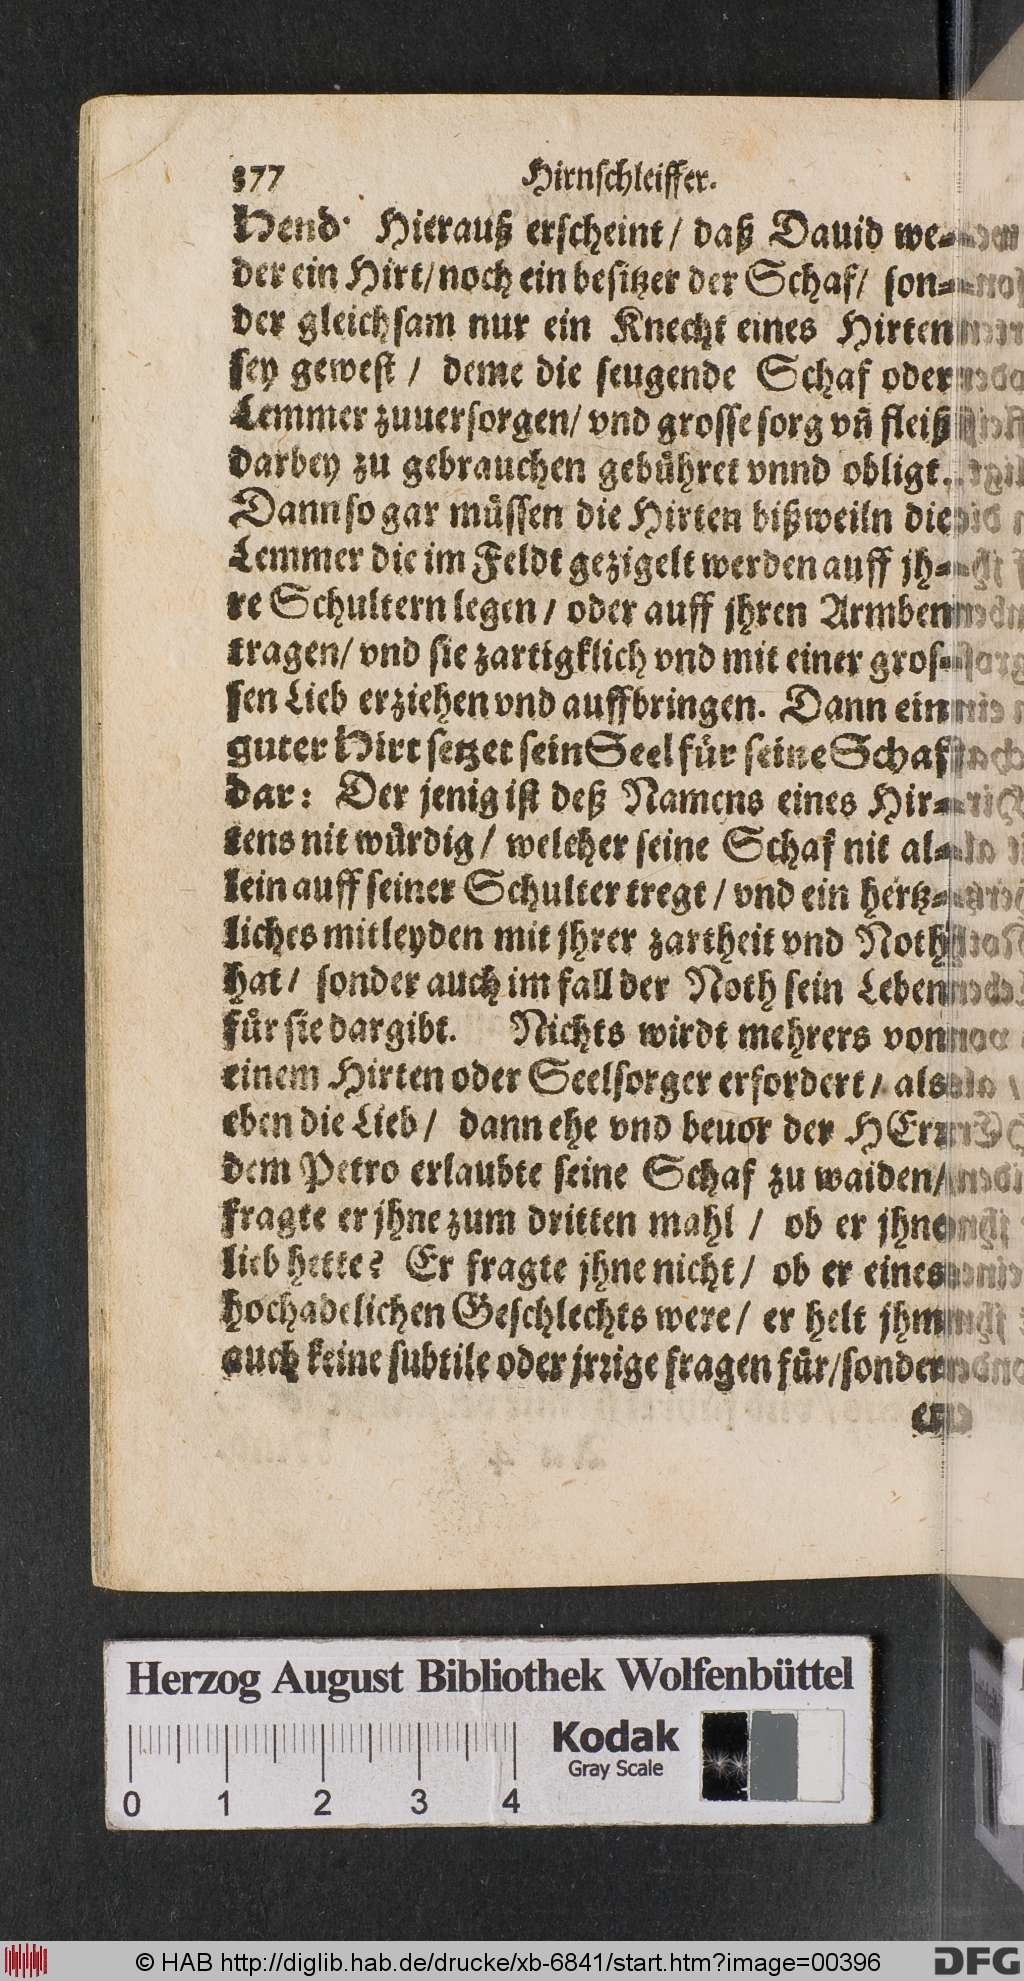 377 Hirnschleiffer.
Hend. Hierauß erscheint / daß Dauid we-
der ein Hirt / noch ein besitzer der Schaf / son-
der gleichsam nur ein Knecht eines Hirten
sey gewest / deme die seugende Schaf oder
Lemmer zuuersorgen / vnd grosse sorg vñ fleiß
darbey zu gebrauchen gebühret vnnd obligt.
Dann so gar müssen die Hirten bißweiln die
Lemmer die im Feldt gezigelt werden auff jh-
re Schultern legen / oder auff jhren Armben
tragen / vnd sie zartigklich vnd mit einer gros-
sen Lieb erziehen vnd auffbringen. Dann ein
guter Hirt setzet sein Seel für seine Schaf
dar: Der jenig ist deß Namens eines Hir-
tens nit würdig / welcher seine Schaf nit al-
lein auff seiner Schulter tregt / vnd ein hertz-
liches mitleyden mit jhrer zartheit vnd Noth
hat / sonder auch im fall der Noth sein Leben
für sie dargibt. Nichts wirdt mehrers von
einem Hirten oder Seelsorger erfordert / als
eben die Lieb / dann ehe vnd beuor der HErr
dem Petro erlaubte seine Schaf zu waiden /
fragte er jhne zum dritten mahl / ob er jhne
lieb hette? Er fragte jhne nicht / ob er eines
hochadelichen Geschlechts were / er helt jhm
auch keine subtile oder jrrige fragen für / sonder
er
Herzog August Bibliothek Wolfenbüttel
Kodak
Gray Scale
0 1 2 3 4
© HAB http://diglib.hab.de/drucke/xb-6841/start.htm?image=00396
DFG